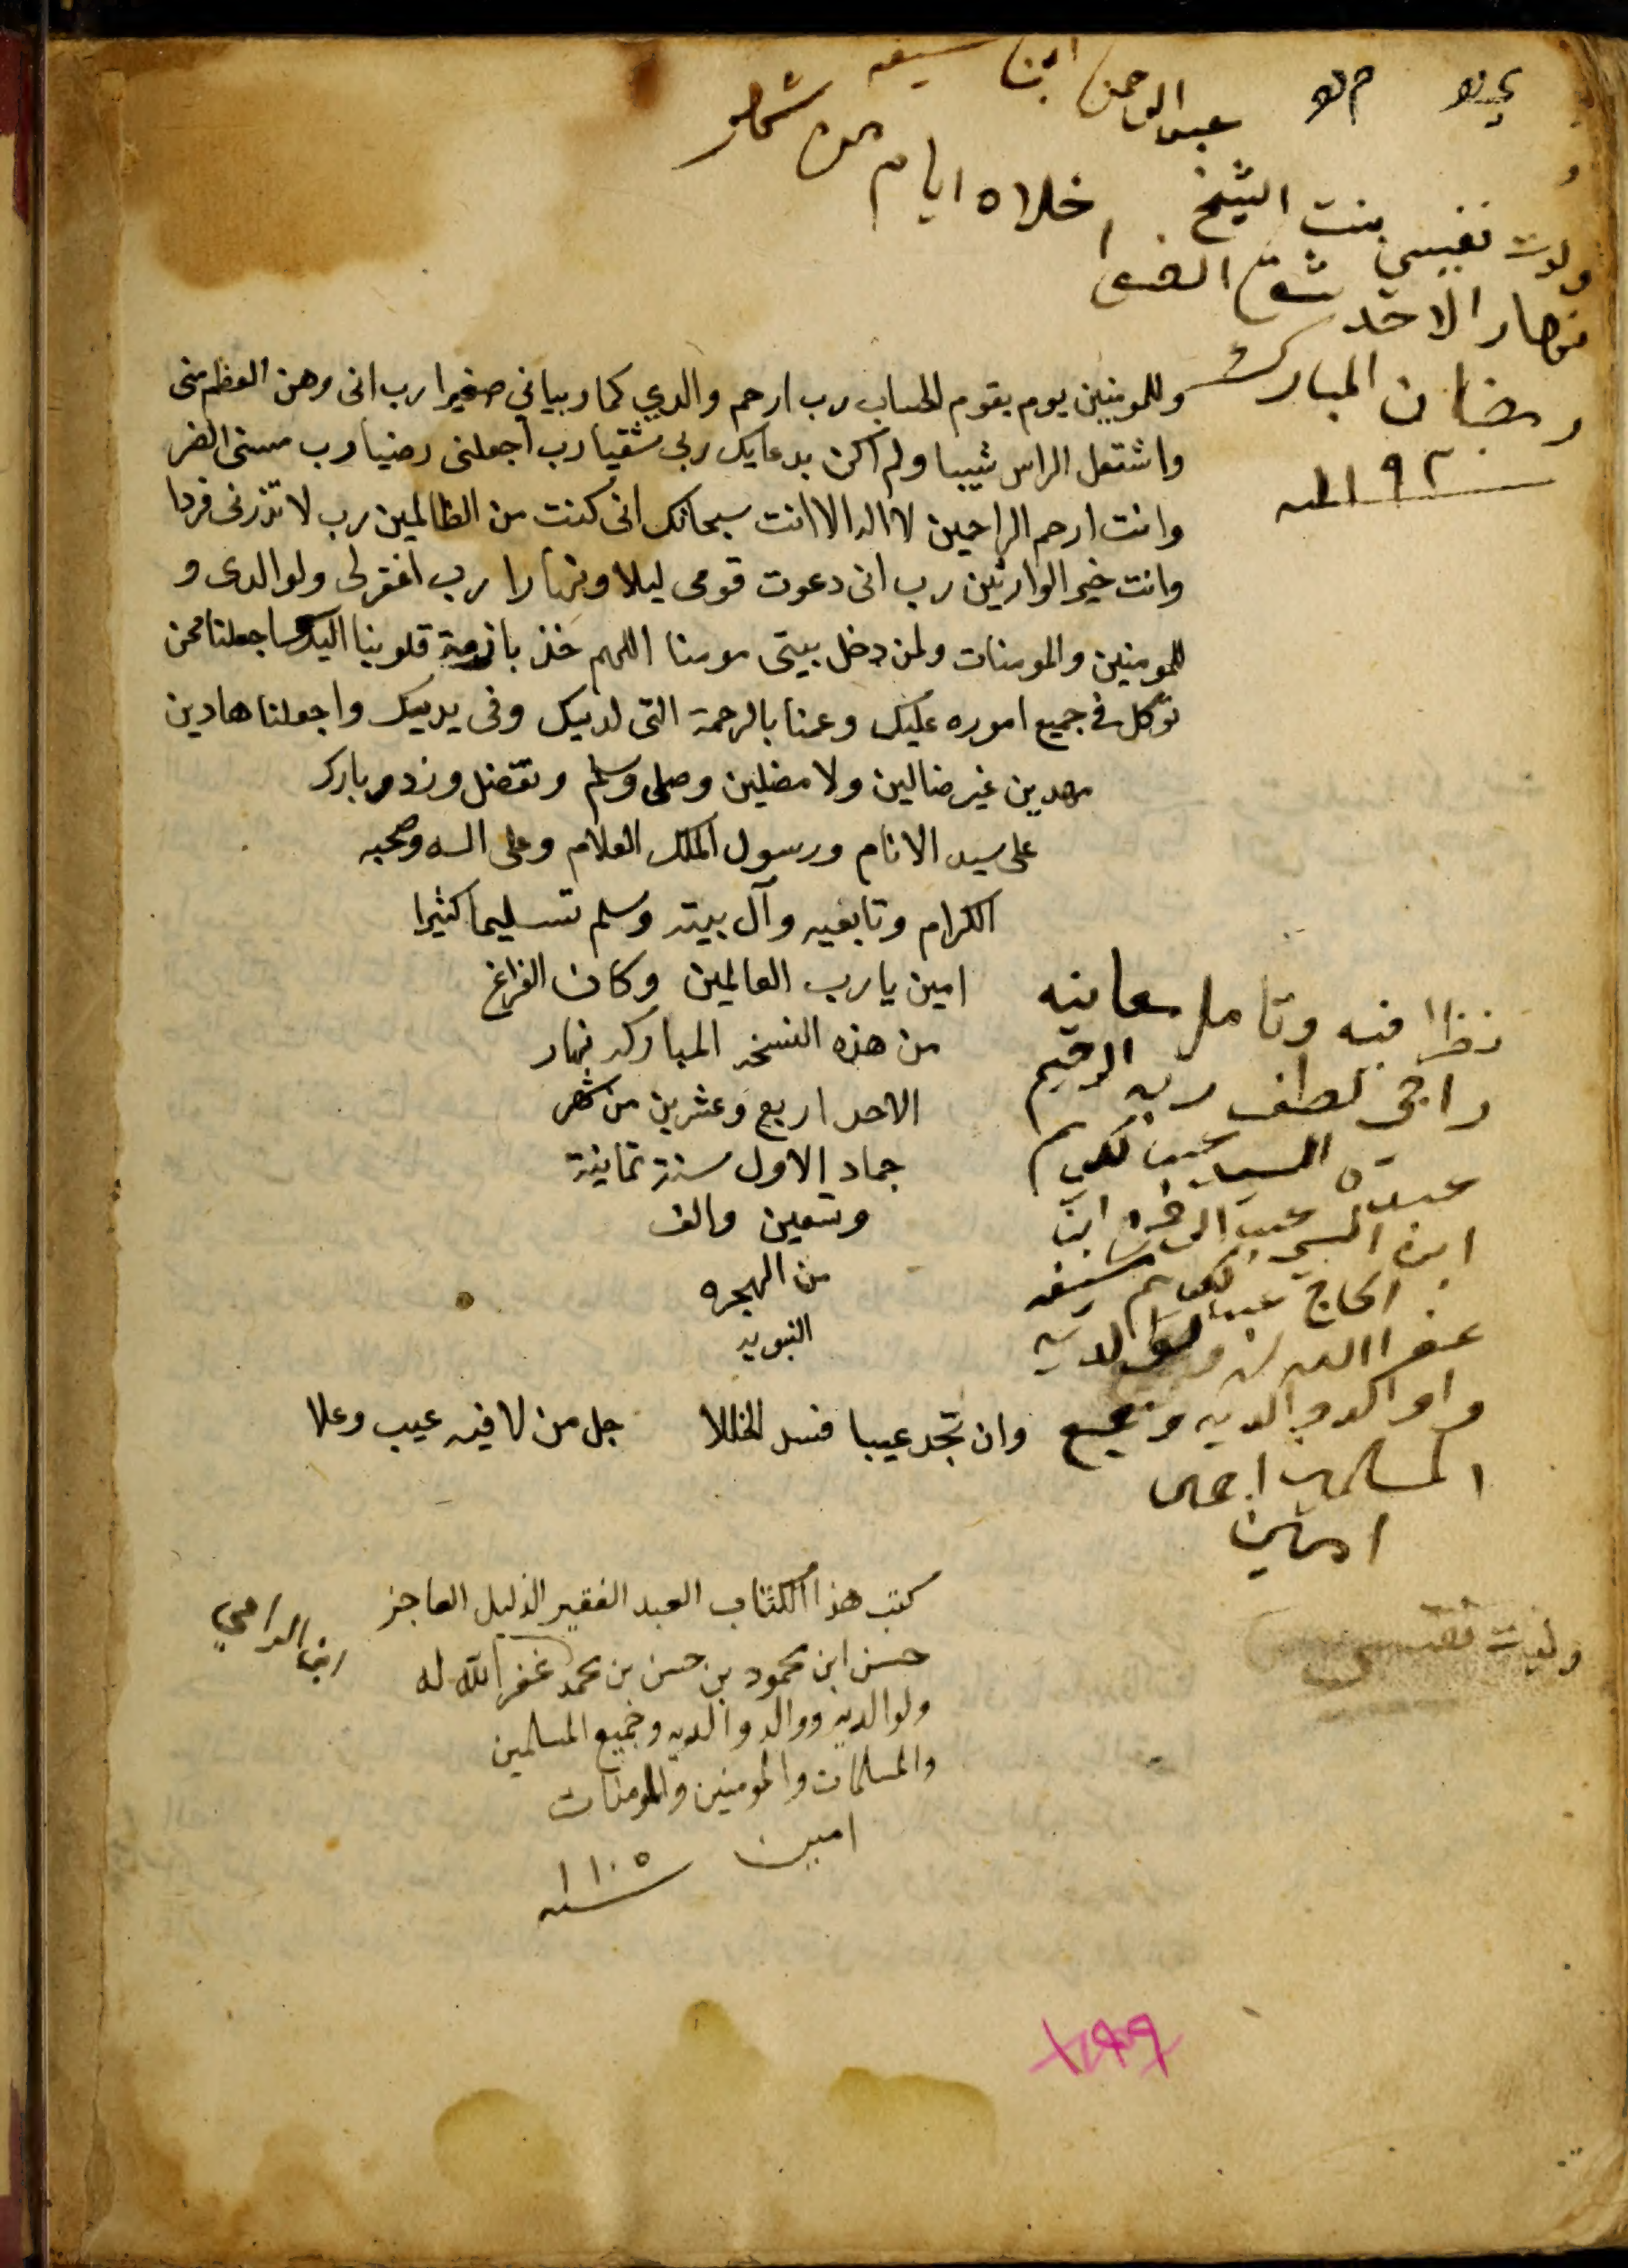 عبدالرحمن ابن
ولدت نفيسى بنت الشيخ
خلاه ايام من شهر
نهار الاحد الضحى
رمضان المبارك
سنة ١١٩٢
وللمومنين يوم يقوم الحساب رب ارحم والدي كما ربياني صغيرا رب انى وهن العظم منى
واشتعل الراس شيبا ولم اكن بدعايك ربى شقيا رب اجعلنى رضيا رب مسنى الضر
وانت ارحم الراحمين لا اله الا انت سبحانك انى كنت من الظالمين رب لا تذرنى فردا
وانت خير الوارثين رب انى دعوت قومى ليلا ونهارا رب اغفر لى ولوالدى و
للمومنين والمومنات ولمن دخل بيتى مومنا اللهم خذ بازمة قلوبنا اليك واجعلنا ممن
توكل فى جميع اموره عليك وعمنا بالرحمة التى لديك وفى يديك واجعلنا هادين
مهدين غير ضالين ولا مضلين وصلى وسلم وتفضل وزد وبارك
على سيد الانام ورسول الملك العلام وعلى اله وصحبه
الكرام وتابعيه وآل بيته وسلم تسليما كثيرا
امين يا رب العالمين وكان الفراغ
من هذه النسخه المباركه نهار
الاحد اربع وعشرين من شهر
جماد الاول سنة ثمانية
وتسعين والف
من الهجره
النبويه
وان تجد عيبا فسد الخللا جل من لا فيه عيب وعلا
نظرا فيه وتامل معانيه
راجى لطف ربه الرحيم
عبده السيد عبدالكريم
ابن السيد عبدالرحمن ابن
الحاج عبدالكريم
عفرا الله له ولوالديه
ووالد والديه وجميع
المسلمين اجمعين
امين
ولدت نفيسى
كتب هذا الكتاب العبد الفقير الذليل العاجز
حسن ابن محمود بن حسن بن محمد غفر الله له
ولوالديه ووالد والديه وجميع المسلمين
والمسلمات والمومنين والمومنات
امين سنة ١١٠٥